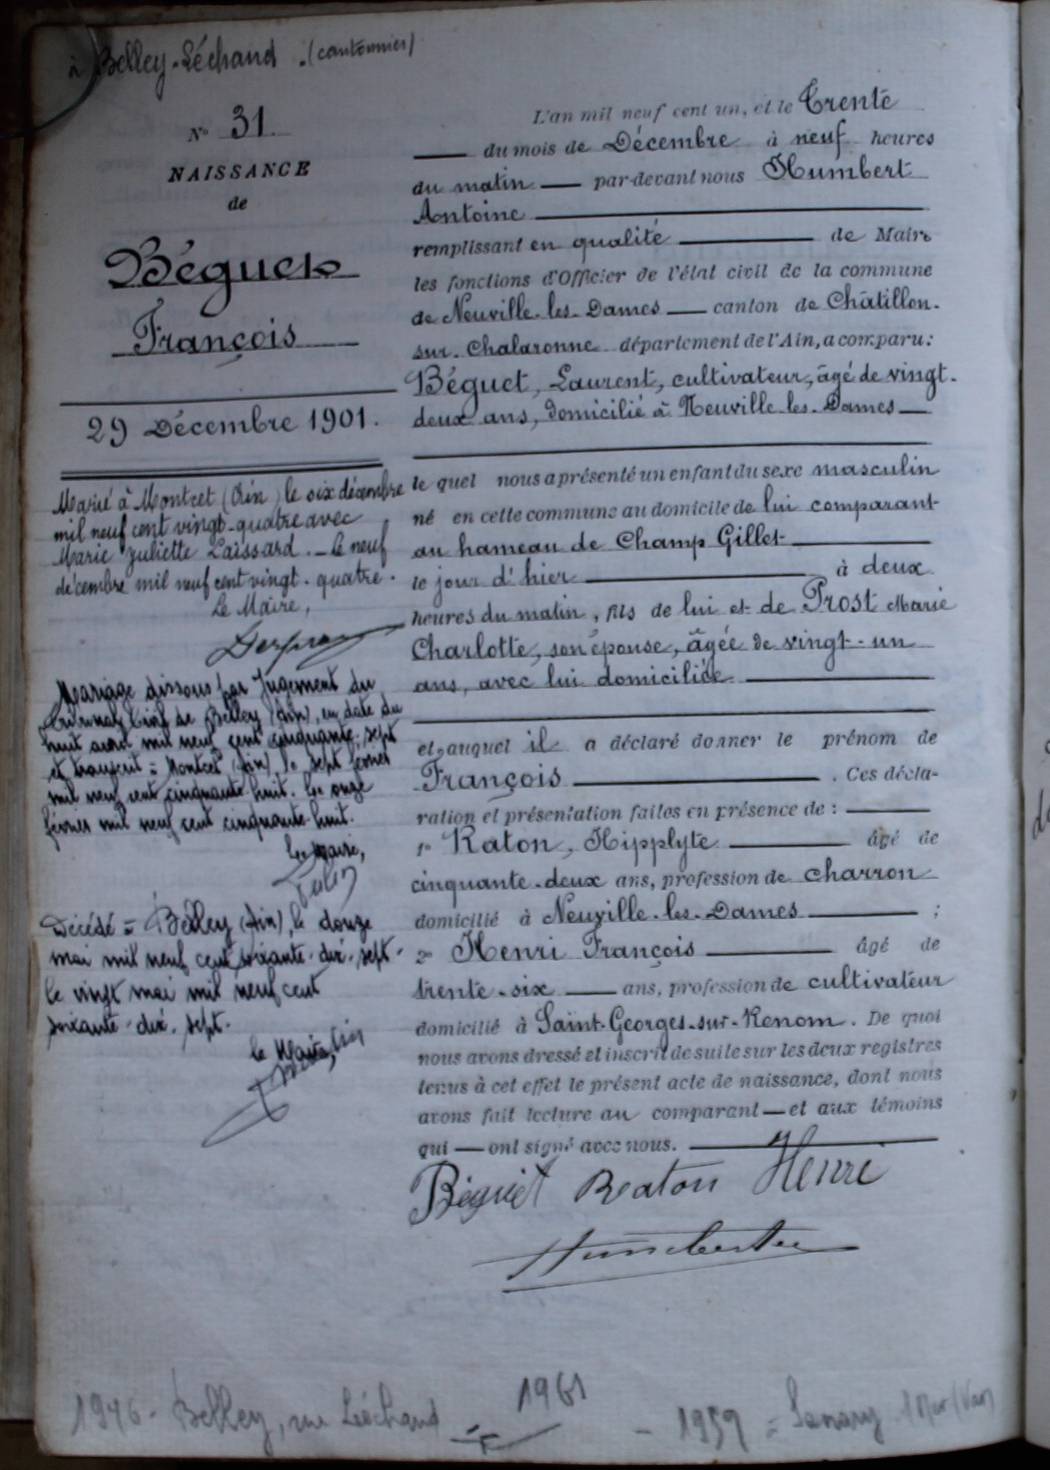 à Belley-Léchaud. (cantonnier)
N° 31
NAISSANCE
de
Béguet
François
29 Décembre 1901.
Marié à Montcet (Ain) le six décembre
mil neuf cent vingt-quatre avec
Marie Juliette Laissard. - Le neuf
décembre mil neuf cent vingt-quatre.
Le Maire,
Mariage dissous par Jugement du
Tribunal Civil de Belley (Ain), en date du
huit avril mil neuf cent cinquante-sept
et transcrit à Montcet (Ain) le sept février
mil neuf cent cinquante-huit. Le onze
février mil neuf cent cinquante-huit.
Le Maire,
Décédé à Belley (Ain), le douze
mai mil neuf cent soixante-dix-sept.
le vingt mai mil neuf cent
soixante-dix-sept.
le Maire,
L'an mil neuf cent un, et le Trente
du mois de Décembre à neuf heures
du matin par-devant nous Humbert
Antoine
remplissant en qualité de Maire
les fonctions d'Officier de l'état civil de la commune
de Neuville-les-Dames canton de Châtillon-
sur-Chalaronne département de l'Ain, a comparu:
Béguet, Laurent, cultivateur, âgé de vingt-
deux ans, domicilié à Neuville-les-Dames
le quel nous a présenté un enfant du sexe masculin
né en cette commune au domicile de lui comparant
au hameau de Champ Gillet
le jour d'hier à deux
heures du matin, fils de lui et de Prost Marie
Charlotte, son épouse, âgée de vingt-un
ans, avec lui domiciliée
et auquel il a déclaré donner le prénom de
François. Ces décla-
ration et présentation faites en présence de :
1° Raton, Hipplyte âgé de
cinquante-deux ans, profession de charron
domicilié à Neuville-les-Dames ;
2° Henri François âgé de
trente-six ans, profession de cultivateur
domicilié à Saint-Georges-sur-Renom. De quoi
nous avons dressé et inscrit de suite sur les deux registres
tenus à cet effet le présent acte de naissance, dont nous
avons fait lecture au comparant et aux témoins
qui ont signé avec nous.
Béguet Raton Henri
Humbert
1946 - Belley, rue Léchaud
1961
- 1959 = Sanary /Mer (Var)